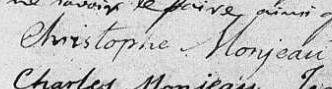 ne savoir le faire ainsi q
Christophe Monjeau
Charles Monjeau